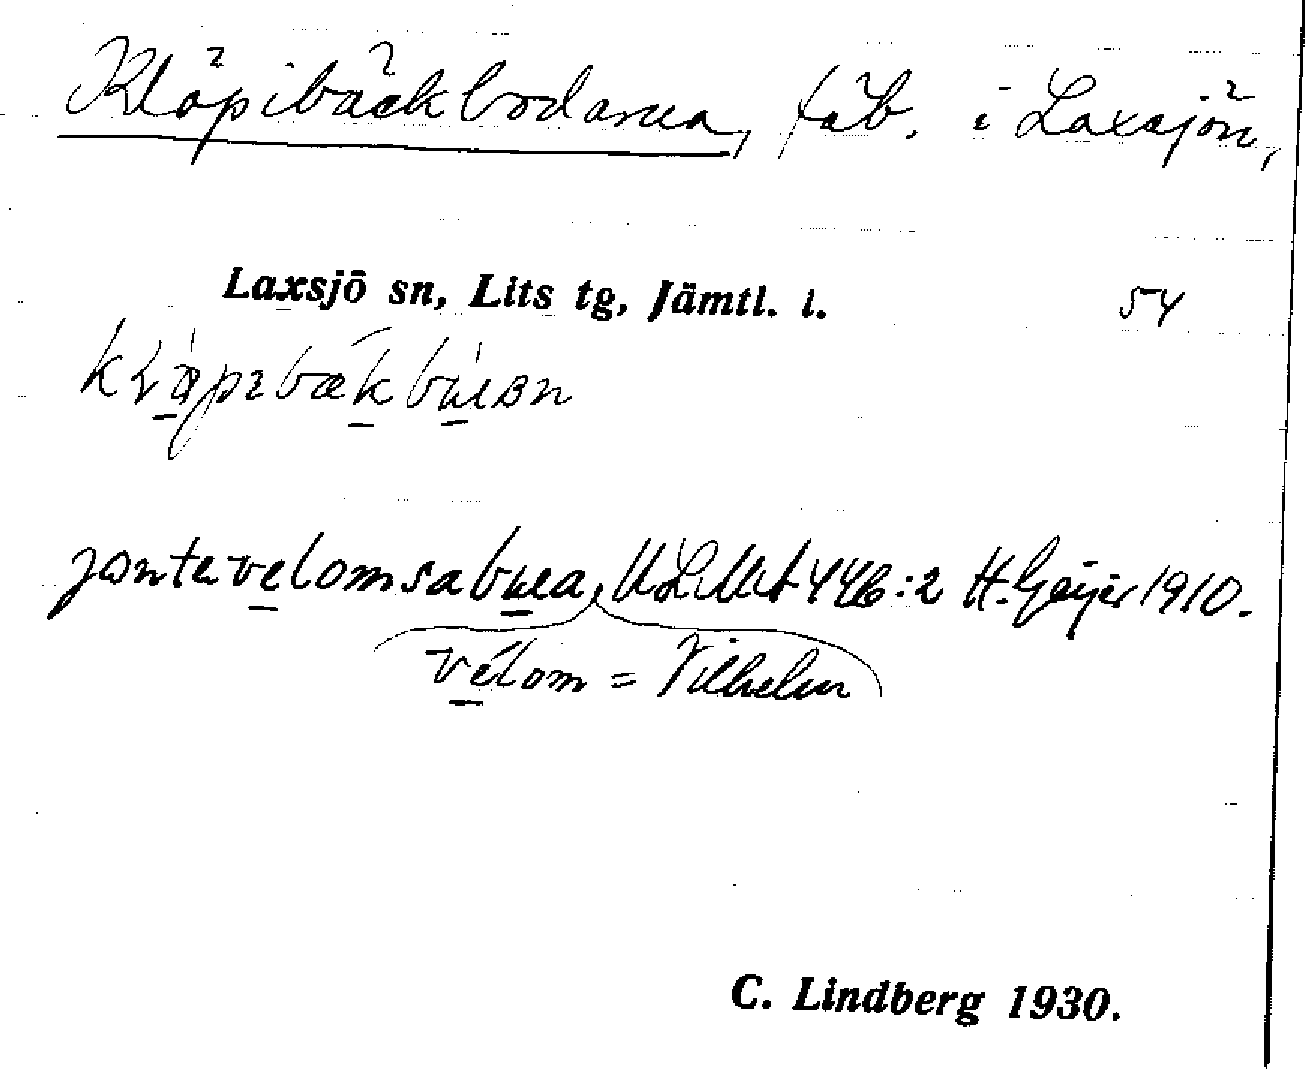 Klöpibäckbodarna, fäb. i Laxsjön,
Laxsjö sn, Lits tg, Jämtl. l. 54
jantevelomsabuea, ULMA 446:2 H. Geijer 1910.
vélom = Vilhelm
C. Lindberg 1930.